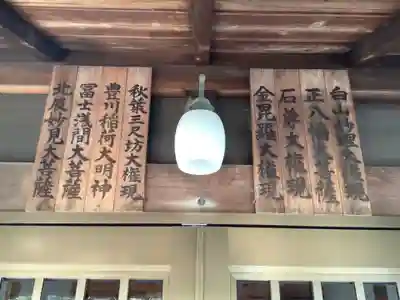 白山妙理大権現
正八幡大菩薩
石峯大権現
金毘羅大権現
秋葉三尺坊大権現
豊川稲荷大明神
冨士浅間大菩薩
北辰妙見大菩薩